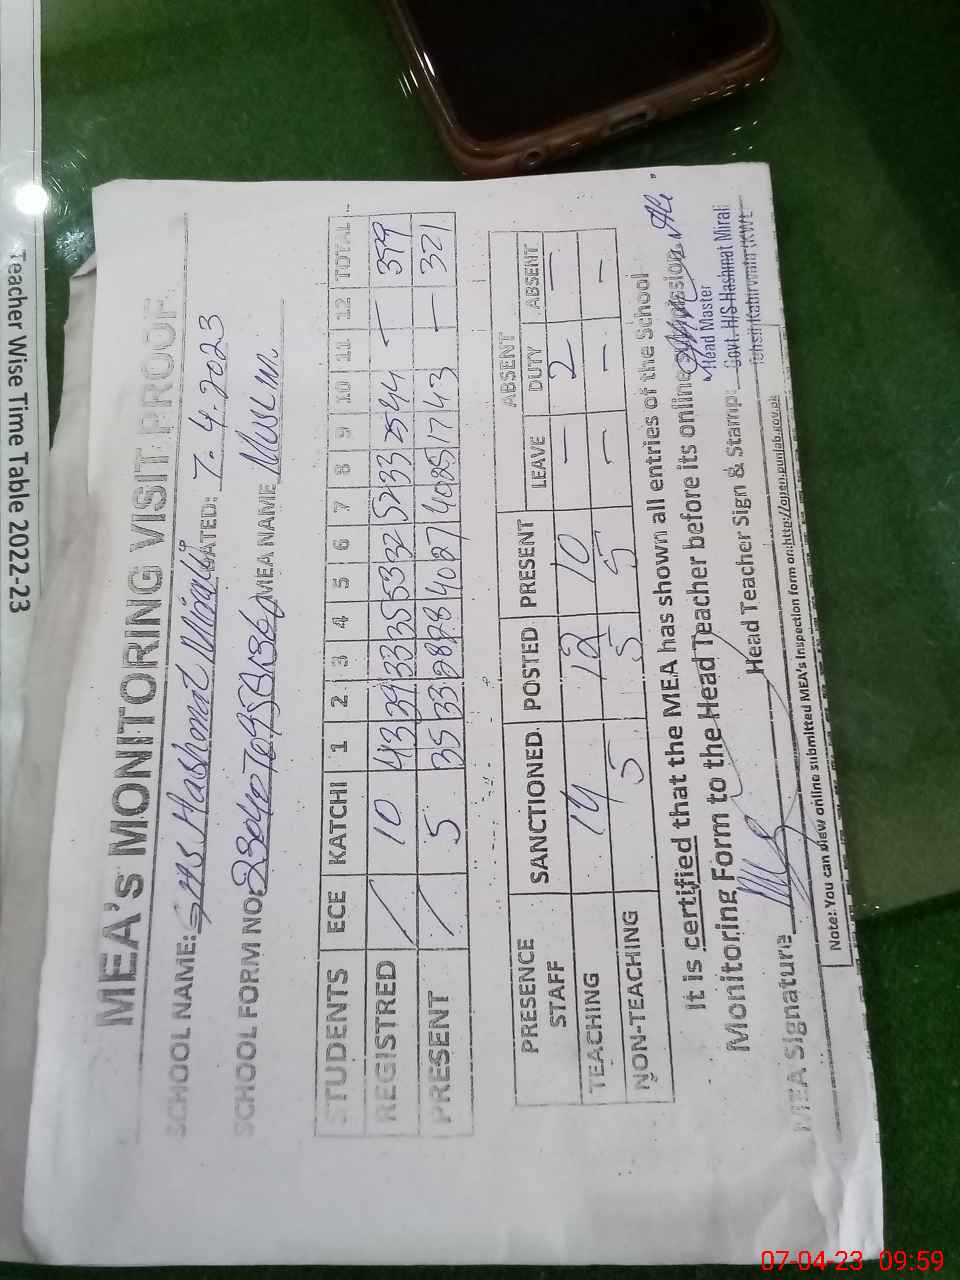 Teacher Wise Time Table 2022-23
MEA's MONITORING VISIT PROOF
SCHOOL NAME: GHS. Hashmat Mirali DATED: 7-4-2023
SCHOOL FORM NO: MEA NAME
STUDENTS ECE KATCHI 1 2 3 4 5 6 7 8 9 10 11 12 TOTAL
REGISTRED / 10 43 39 33 35 53 32 52 33 25 44 — 379
PRESENT / 5 35 33 28 28 40 27 40 25 17 43 — 321
ABSENT
PRESENCE STAFF SANCTIONED POSTED PRESENT LEAVE DUTY ABSENT
TEACHING 14 12 10 — 2 —
NON-TEACHING 5 5 5 — — —
It is certified that the MEA has shown all entries of the School
Monitoring Form to the Head Teacher before its online
Head Master
Govt. H/S Hashmat Mirali
Tehsil Kabirwala (KWL
MEA Signature Head Teacher Sign & Stamp:
Note: You can view online submitted MEA's Inspection form on:http://open.punjab.gov.pk
07-04-23 09:59